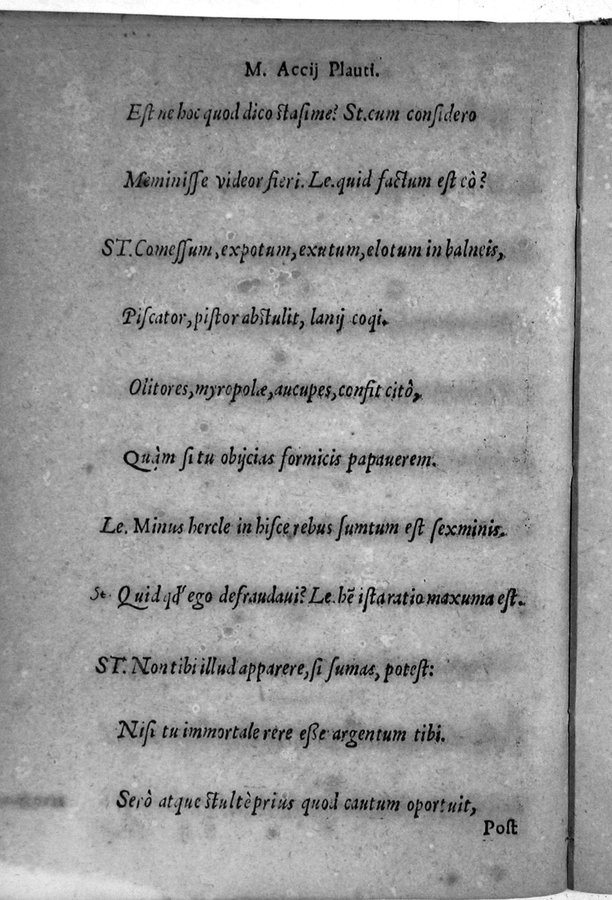 M. Accij Plauti.
Est ne hoc quod dico stasime? St. cum considero
Meminisse videor fieri. Le. quid factum est eô?
ST. Comessum, expotum, exutum, elotum in balneis,
Piscator, pistor abstulit, lanij coqi.
Olitores, myropolæ, aucupes, confit citò,
Quàm si tu obijcias formicis papauerem.
Le. Minus hercle in hisce rebus sumtum est sexminis.
St. Quid qđ ego defraudaui? Le. hẽ ista ratio maxuma est.
ST. Non tibi illud apparere, si sumas, potest:
Nisi tu immortale rere esse argentum tibi.
Serò atque stultè prius quod cautum oportuit,
Post